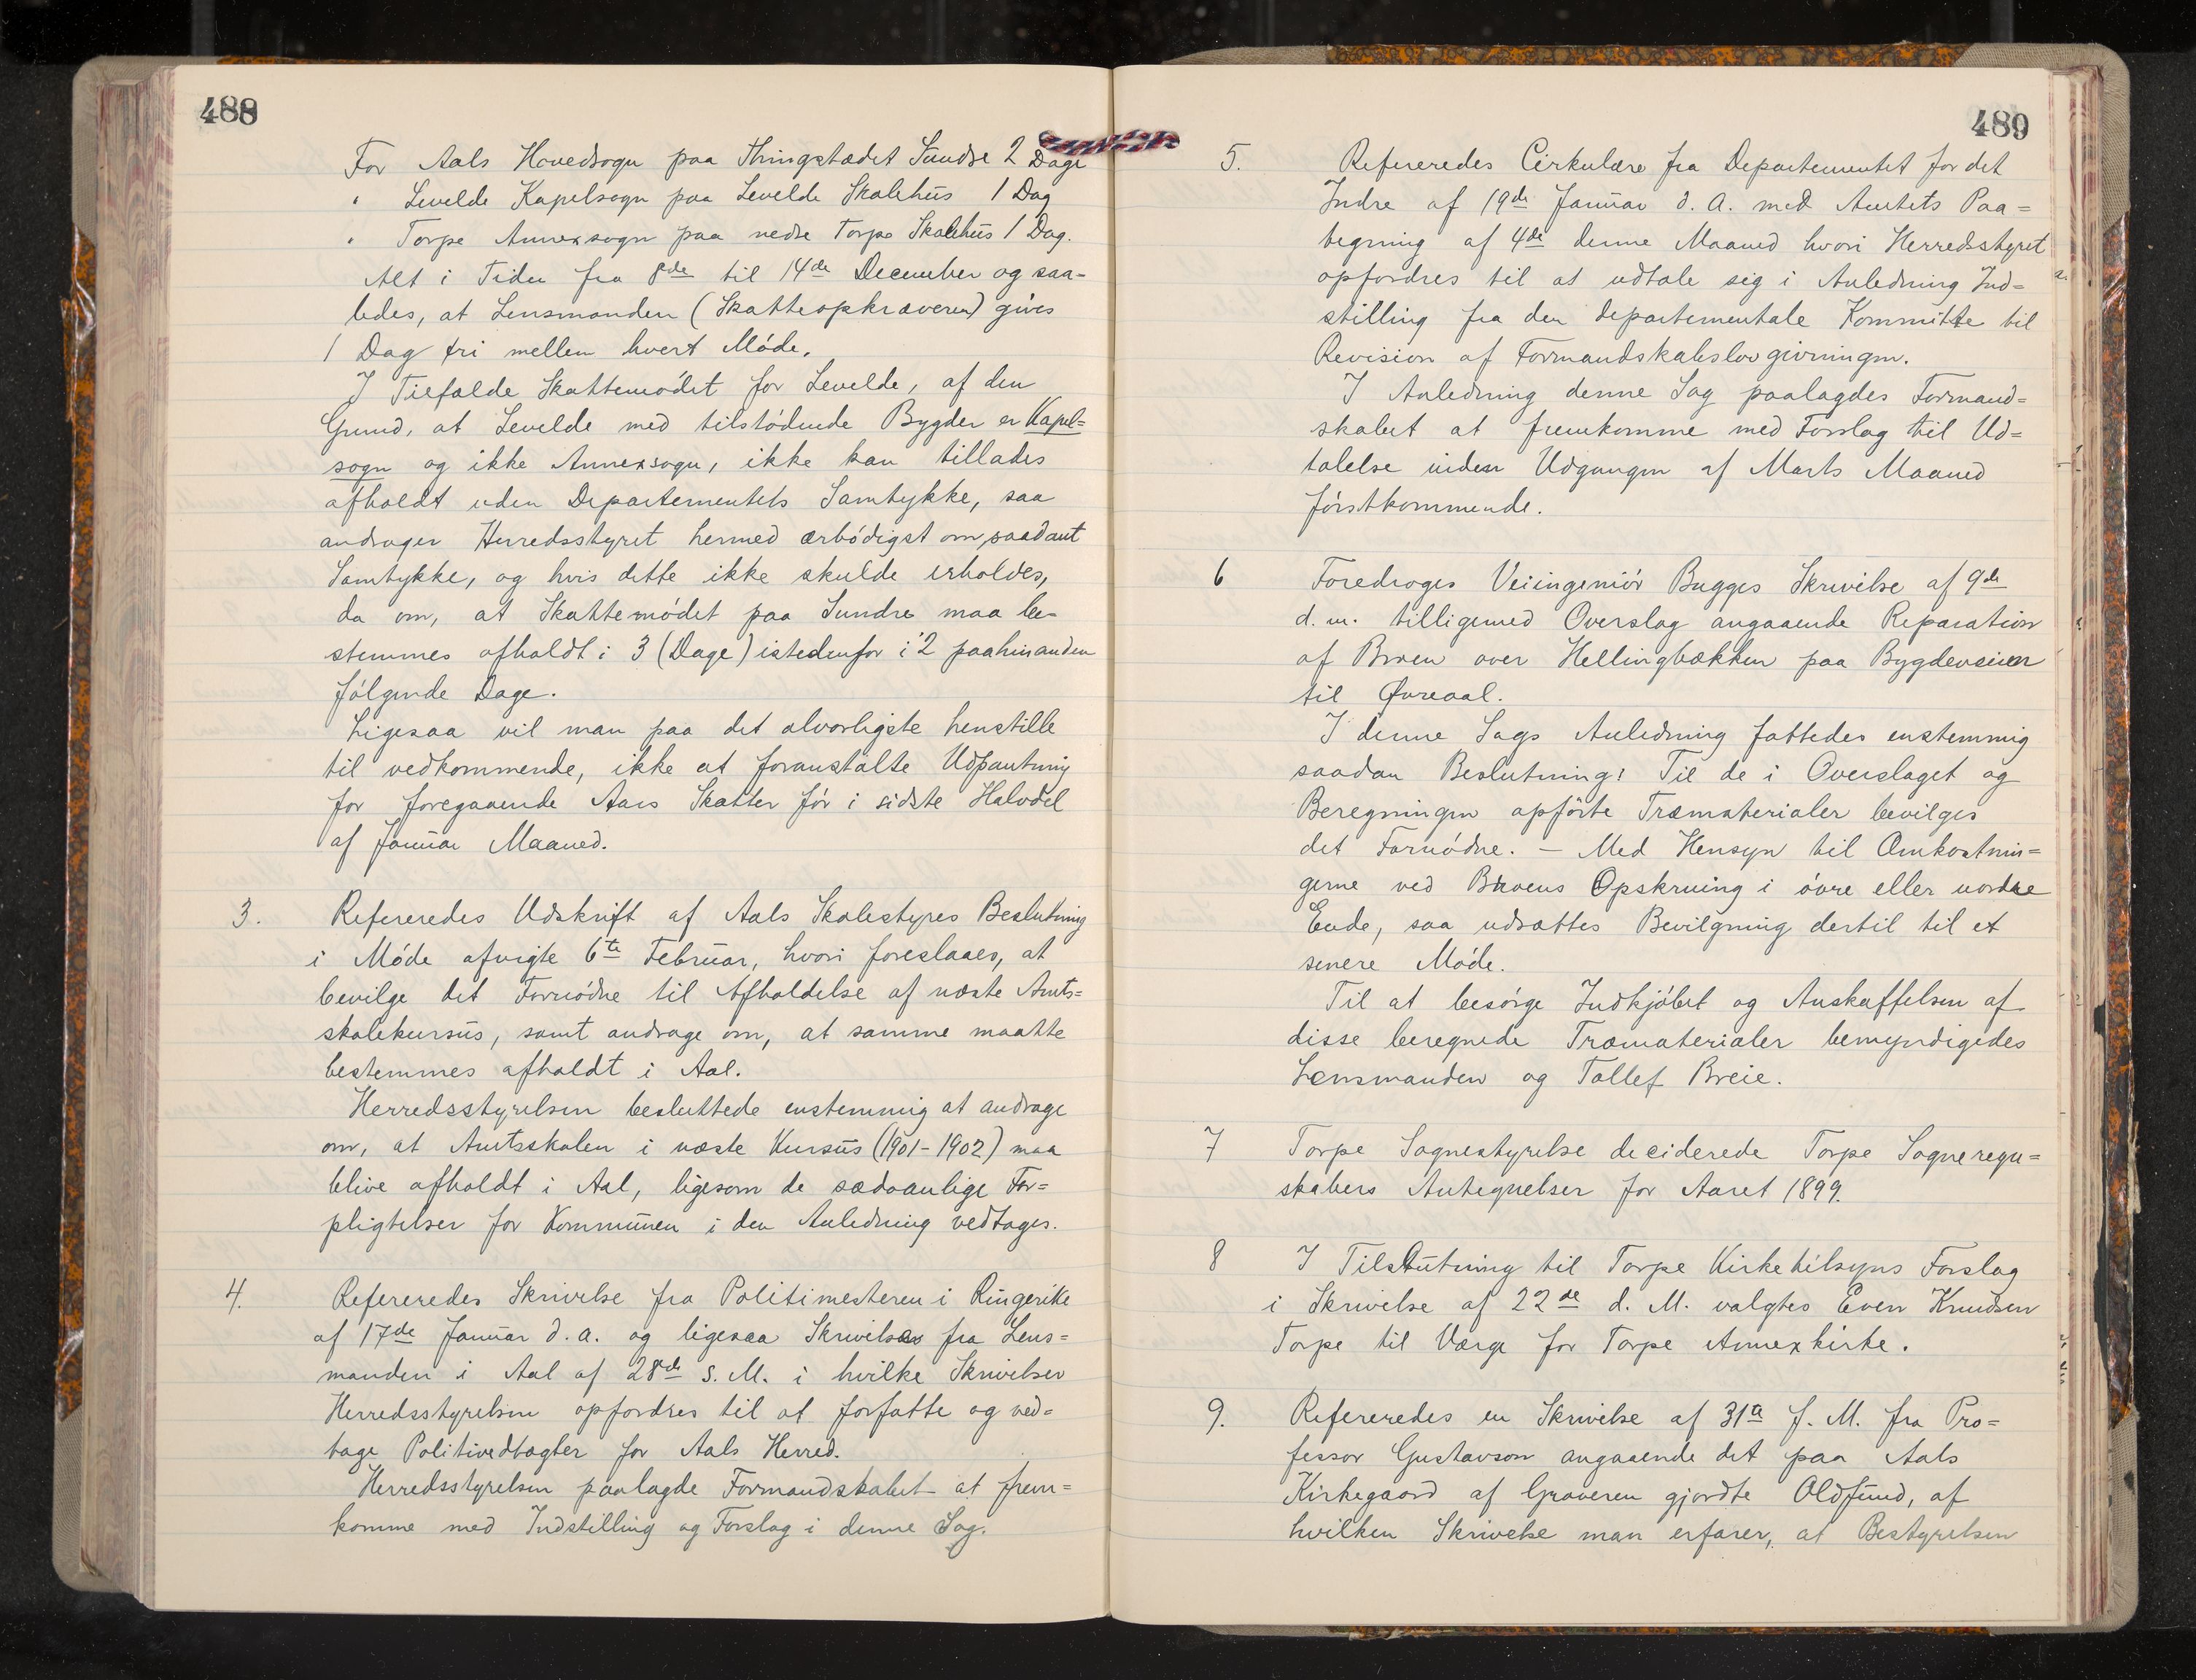 488
For Aals Hovedsogn paa Thingstædet Sundre 2 Dage
" Levelde Kapelsogn paa Levelde Skolehus 1 Dag
" Torpe Annexsogn paa nedre Torpe Skolehus 1 Dag.
Alt i Tiden fra 8de til 14de December og saa-
ledes, at Lensmanden (Skatteopkræveren) gives
1 Dag fri mellem hvert Møde.
I Tilfælde Skattemødet for Levelde, af den
Grund, at Levelde med tilstødende Bygder er Kapel=
sogn og ikke Annexsogn, ikke kan tillades
afholdt uden Departementets Samtykke, saa
andrager Herredsstyret hermed ærbødigst om saadant
Samtykke, og hvis dette ikke skulde erholdes,
da om, at Skattemødet paa Sundre maa be-
stemmes afholdt i 3 (Dage) istedenfor i 2 paahinanden
følgende Dage.
Ligesaa vil man paa det alvorligste henstille
til vedkommende, ikke at foranstalte Udpantning
for foregaaende Aars Skatter før i sidste Halvdel
af Januar Maaned.
3. Refereredes Udskrift af Aals Skolestyres Beslutning
i Møde afvigte 6te Februar, hvori foreslaaes, at
bevilge det Fornødne til Afholdelse af næste Amts=
skolekursus, samt andrage om, at samme maatte
bestemmes afholdt i Aal.
Herredsstyrelsen besluttede enstemmig at andrage
om, at Amtsskolen i næste Kursus (1901-1902) maa
blive afholdt i Aal, ligesom de sædvanlige For=
pligtelser for Kommunen i den Anledning vedtages.
4. Refereredes Skrivelse fra Politimesteren i Ringerike
af 17de Januar d. a. og ligesaa Skrivelse fra Lens=
manden i Aal af 28de s. M. i hvilke Skrivelser
Herredsstyrelsen opfordres til at forfatte og ved=
tage Politivedtægter for Aals Herred.
Herredsstyrelsen paalagde Formandskabet at frem=
komme med Indstilling og Forslag i denne Sag.
489
5. Refereredes Cirkulære fra Departementet for det
Indre af 19de Januar d. A. med Amtets Paa=
tegning af 4de denne Maaned hvori Herredsstyret
opfordres til at udtale sig i Anledning Ind=
stilling fra den departementale Kommitte til
Revision af Formandskabslovgivningen.
I Anledning denne Sag paalagdes Formand=
skabet at fremkomme med Forslag til Ud=
talelse inden Udgangen af Marts Maaned
førstkommende.
6 Foredroges Veiingeniør Bugges Skrivelse af 9de
d. m. tilligemed Overslag angaaende Reparation
af Broen over Hellingbækken paa Bygdeveien
til Øvreaal.
I denne Sags Anledning fattedes enstemmig
saadan Beslutning: Til de i Overslaget og
Beregningen opførte Træmaterialer bevilges
det Fornødne. – Med Hensyn til Omkostnin=
gerne ved Broens Opskruing i øvre eller nordre
Ende, saa udsættes Bevilgning dertil til et
senere Møde.
Til at besørge Indkjøbet og Anskaffelsen af
disse beregnede Træmaterialer bemyndigedes
Lensmanden og Tollef Breie.
7 Torpe Sognestyrelse deciderede Torpe Sogneregn=
skabers Antegnelser for Aaret 1899.
8 I Tilslutning til Torpe Kirketilsyns Forslag
i Skrivelse af 22de d. M. valgtes Even Knudsen
Torpe til Værge for Torpe Annexkirke.
9. Refereredes en Skrivelse af 31te f. M. fra Pro=
fessor Gustavson angaaende det paa Aals
Kirkegaard af Graveren gjordte Oldfund, af
hvilken Skrivelse man erfarer, at Bestyrelsen